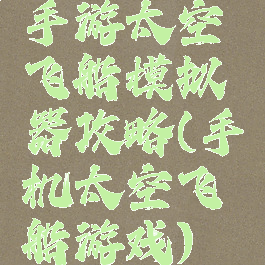 手游太空
飞船模拟
器攻略(手
机太空飞
船游戏)